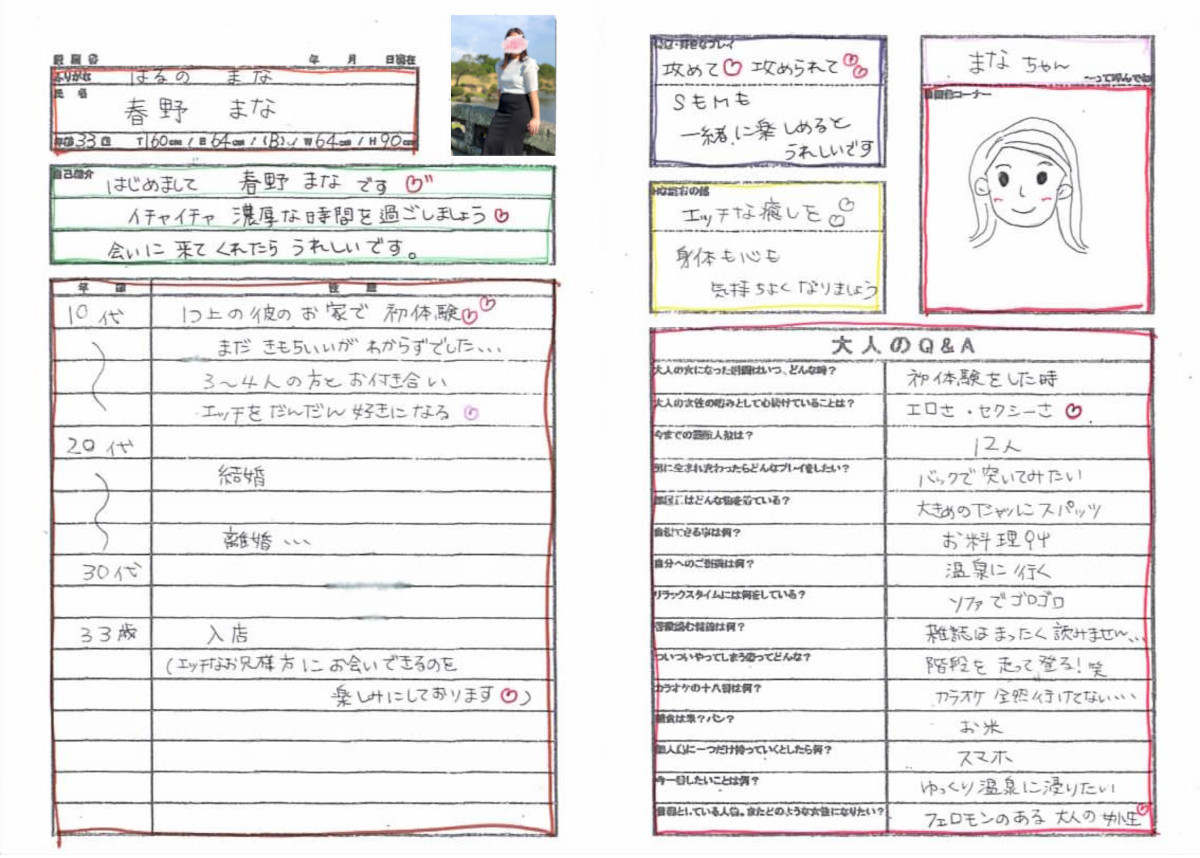 履歴書 年 月 日現在
ふりがな はるの まな
氏名 春野 まな
年齢 33歳 T160cm / B64cm / (B) / W64cm / H90cm
自己紹介 はじめまして 春野 まな です
イチャイチャ 濃厚な時間を過ごしましょう
会いに 来て くれたら うれしいです。
年齢 性歴
10代 1つ上の彼の お家で 初体験
まだ きもちいいが わからずでした...
3〜4人の方と お付き合い
エッチを だんだん 好きになる
20代
結婚
離婚...
30代
33歳 入店
(エッチなお兄様方に お会いできるのを
楽しみにしております )
好きなプレイ
攻めて 攻められて
SもMも
一緒に楽しめると
うれしいです
エッチな癒しを
身体も心も
気持ちよくなりましょう
まな ちゃん
〜って呼んでね
自画像コーナー
大人のQ&A
大人の女になった瞬間はいつ、どんな時? 初体験をした時
大人の女性の嗜みとして心掛けていることは? エロさ・セクシーさ
今までの経験人数は? 12人
男に生まれ変わったらどんなプレイをしたい? バックで突いてみたい
部屋にはどんな物を着ている? 大きめのTシャツにスパッツ
自慢できる事は何? お料理
自分へのご褒美は何? 温泉に行く
リラックスタイムには何をしている? ソファでゴロゴロ
雑誌はまったく読みません...
ついついやってしまう癖ってどんな? 階段を走って登る!笑
カラオケの十八番は何? カラオケ 全然行けてない...
朝食は米?パン? お米
無人島に一つだけ持っていくとしたら何? スマホ
今一番したいことは何? ゆっくり温泉に浸りたい
目標としている人は。またどのような女性になりたい? フェロモンのある 大人の女性